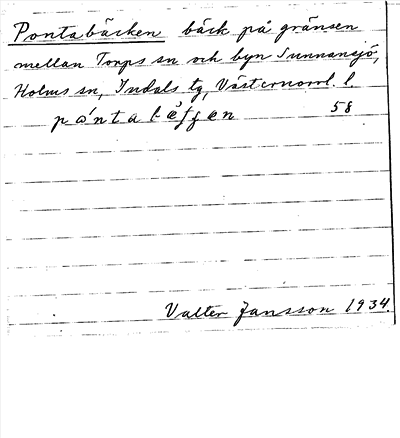 Pontabäcken bäck på gränsen
mellan Torps sn och byn Sunnansjö,
Holms sn, Indals tg, Västernorrl. l.
58
Valter Jansson 1934.